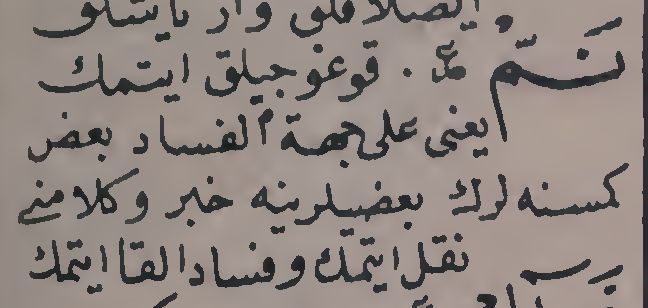 وار
نَمّ قوغوجيلق ايتمك
يعنى على جهة الفساد بعض
كمسنه لرك بعضيلرينه خبر و كلامنى
نقل ايتمك و فساد القا ايتمك